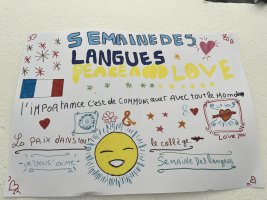 SEMAINE DES
LANGUES
PEACE AND LOVE
L'IMPORTANCE C'EST DE COMMUNIQUER AVEC TOUT LE MONDE
&
La PAIX DANS le collège
Love you
-Je vous aime-
SEMAINE Des langues